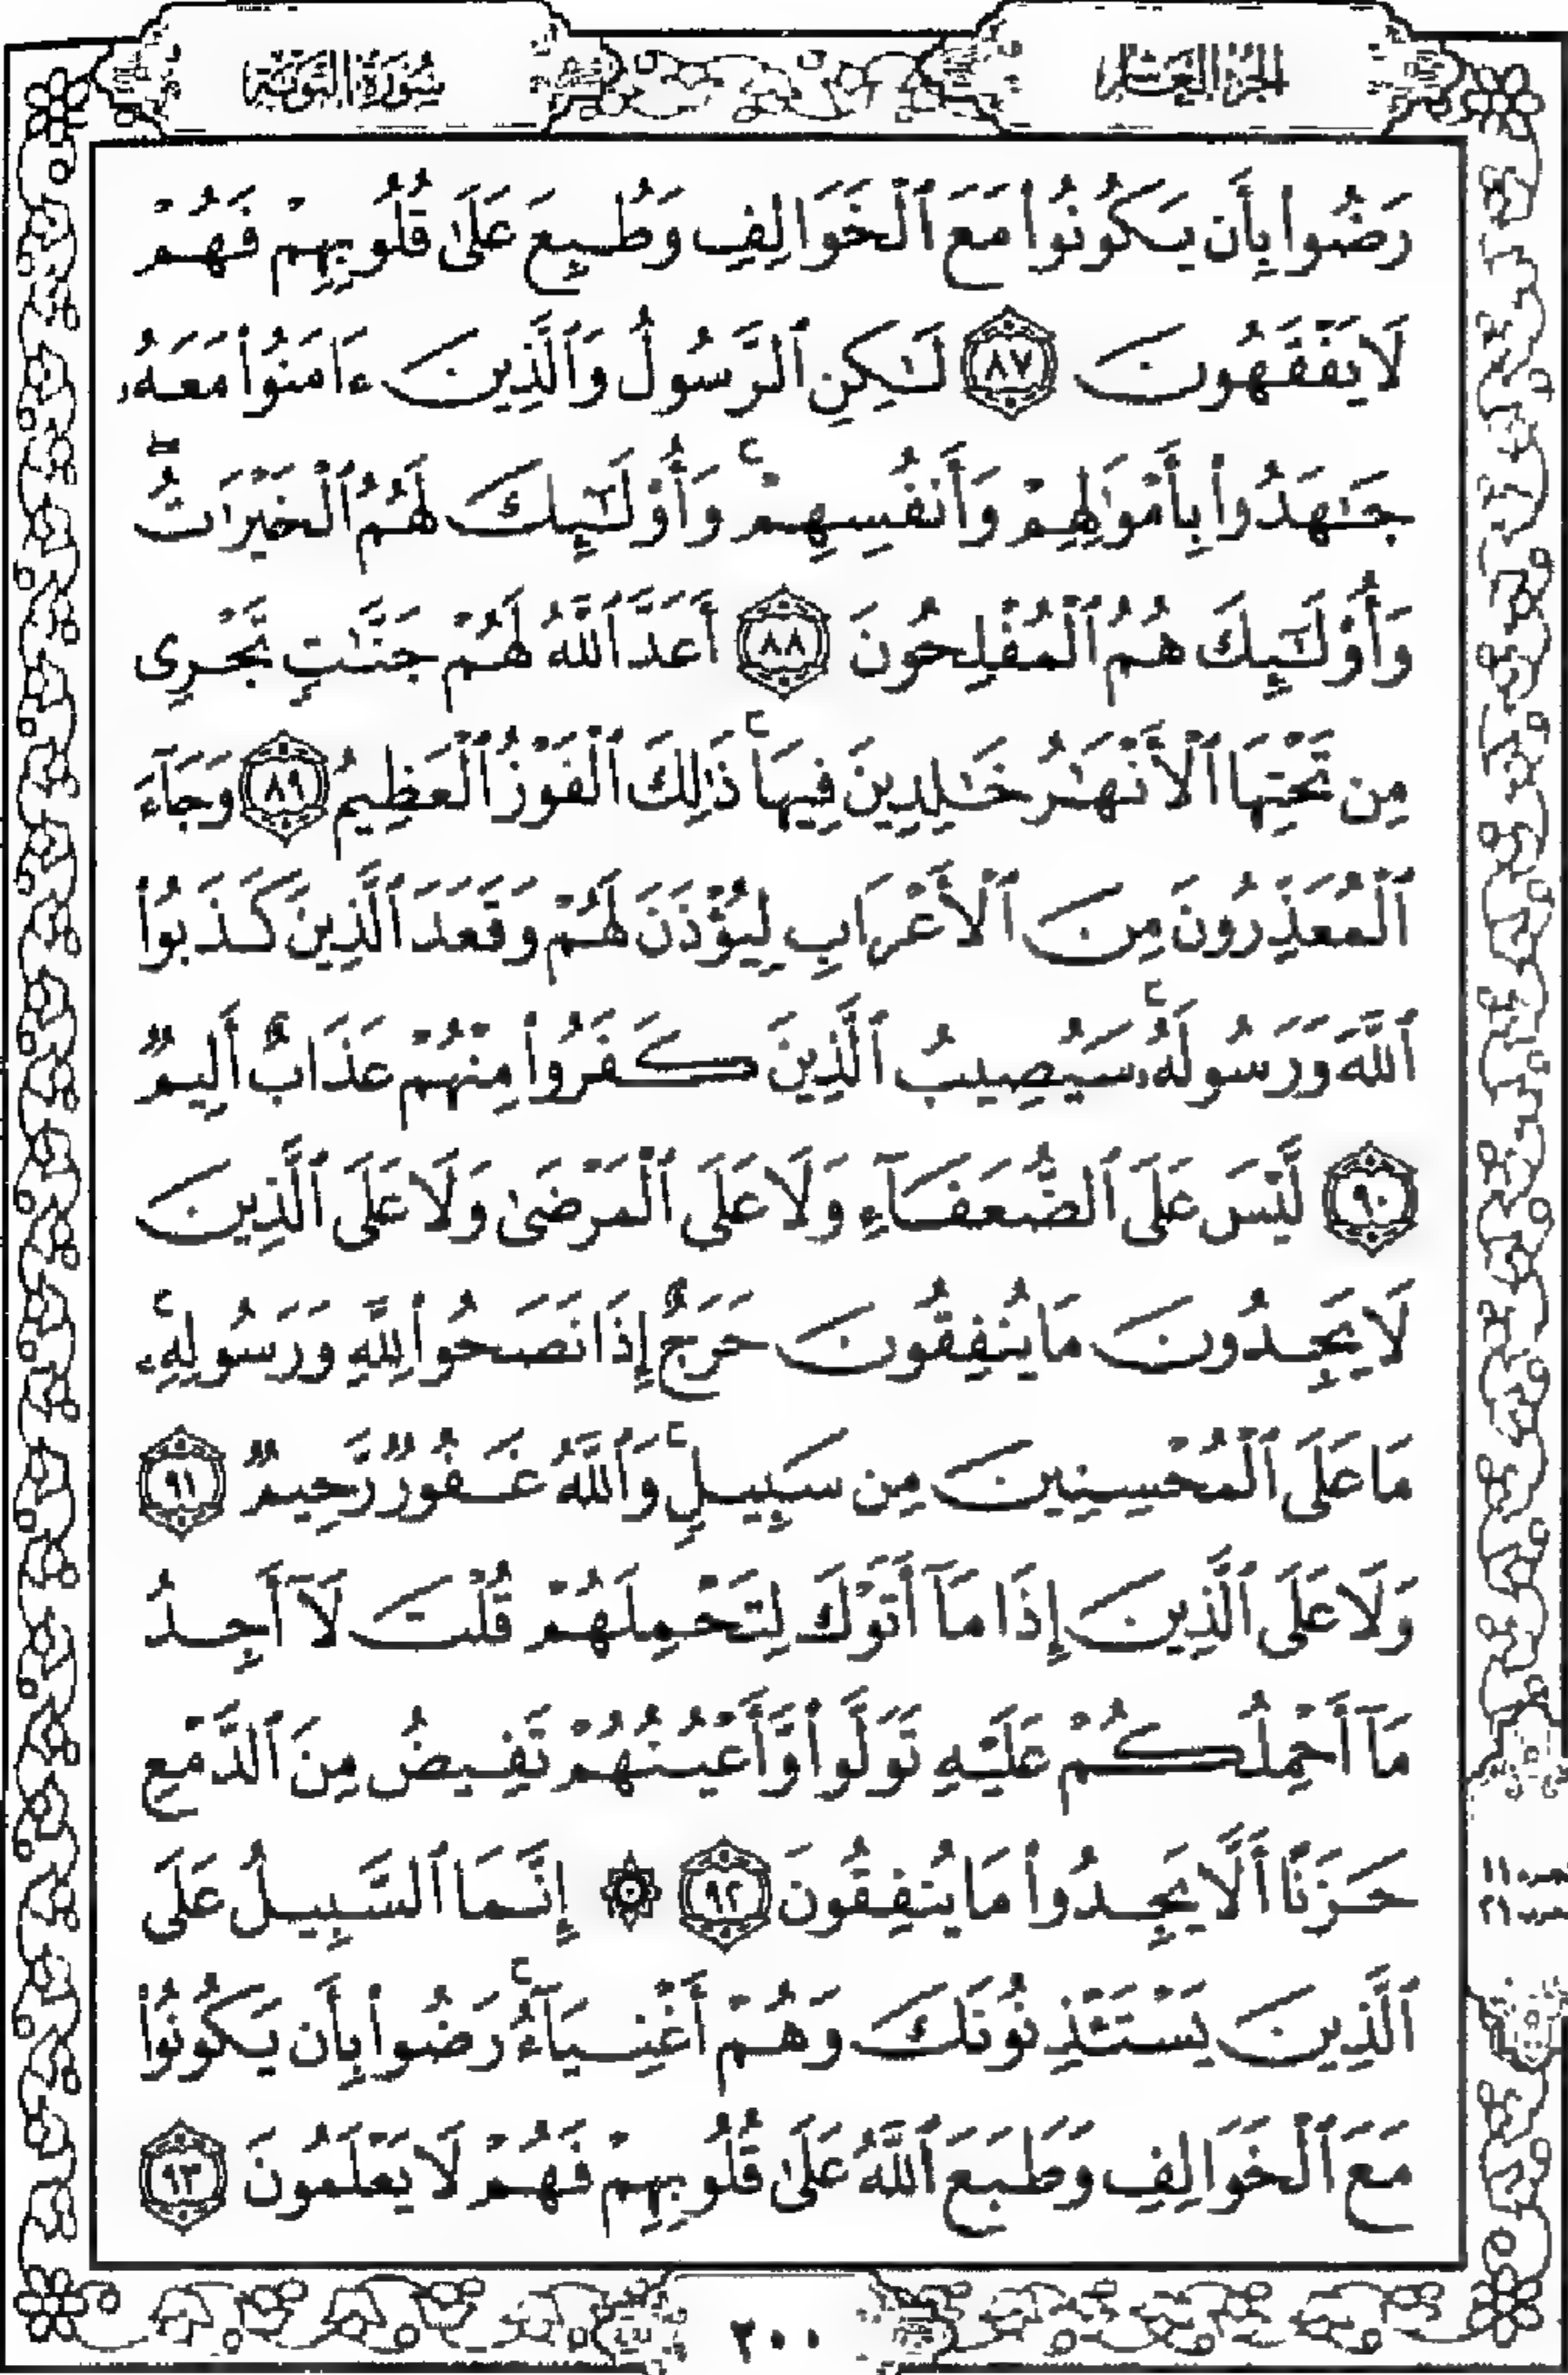 الجزء العاشر
سورة التوبة
رَضُوا۟ بِأَن يَكُونُوا۟ مَعَ ٱلْخَوَالِفِ وَطُبِعَ عَلَىٰ قُلُوبِهِمْ فَهُمْ
لَا يَفْقَهُونَ ٨٧ لَٰكِنِ ٱلرَّسُولُ وَٱلَّذِينَ ءَامَنُوا۟ مَعَهُۥ
جَٰهَدُوا۟ بِأَمْوَٰلِهِمْ وَأَنفُسِهِمْ ۚ وَأُو۟لَٰٓئِكَ لَهُمُ ٱلْخَيْرَٰتُ ۖ
وَأُو۟لَٰٓئِكَ هُمُ ٱلْمُفْلِحُونَ ٨٨ أَعَدَّ ٱللَّهُ لَهُمْ جَنَّٰتٍ تَجْرِى
مِن تَحْتِهَا ٱلْأَنْهَٰرُ خَٰلِدِينَ فِيهَا ۚ ذَٰلِكَ ٱلْفَوْزُ ٱلْعَظِيمُ ٨٩ وَجَآءَ
ٱلْمُعَذِّرُونَ مِنَ ٱلْأَعْرَابِ لِيُؤْذَنَ لَهُمْ وَقَعَدَ ٱلَّذِينَ كَذَبُوا۟
ٱللَّهَ وَرَسُولَهُۥ ۚ سَيُصِيبُ ٱلَّذِينَ كَفَرُوا۟ مِنْهُمْ عَذَابٌ أَلِيمٌ
٩٠ لَّيْسَ عَلَى ٱلضُّعَفَآءِ وَلَا عَلَى ٱلْمَرْضَىٰ وَلَا عَلَى ٱلَّذِينَ
لَا يَجِدُونَ مَا يُنفِقُونَ حَرَجٌ إِذَا نَصَحُوا۟ لِلَّهِ وَرَسُولِهِۦ ۚ
مَا عَلَى ٱلْمُحْسِنِينَ مِن سَبِيلٍ ۚ وَٱللَّهُ غَفُورٌ رَّحِيمٌ ٩١
وَلَا عَلَى ٱلَّذِينَ إِذَا مَآ أَتَوْكَ لِتَحْمِلَهُمْ قُلْتَ لَآ أَجِدُ
مَآ أَحْمِلُكُمْ عَلَيْهِ تَوَلَّوا۟ وَّأَعْيُنُهُمْ تَفِيضُ مِنَ ٱلدَّمْعِ
حَزَنًا أَلَّا يَجِدُوا۟ مَا يُنفِقُونَ ٩٢ ۞ إِنَّمَا ٱلسَّبِيلُ عَلَى
ٱلَّذِينَ يَسْتَـْٔذِنُونَكَ وَهُمْ أَغْنِيَآءُ ۚ رَضُوا۟ بِأَن يَكُونُوا۟
مَعَ ٱلْخَوَالِفِ وَطَبَعَ ٱللَّهُ عَلَىٰ قُلُوبِهِمْ فَهُمْ لَا يَعْلَمُونَ ٩٣
٢٠٠